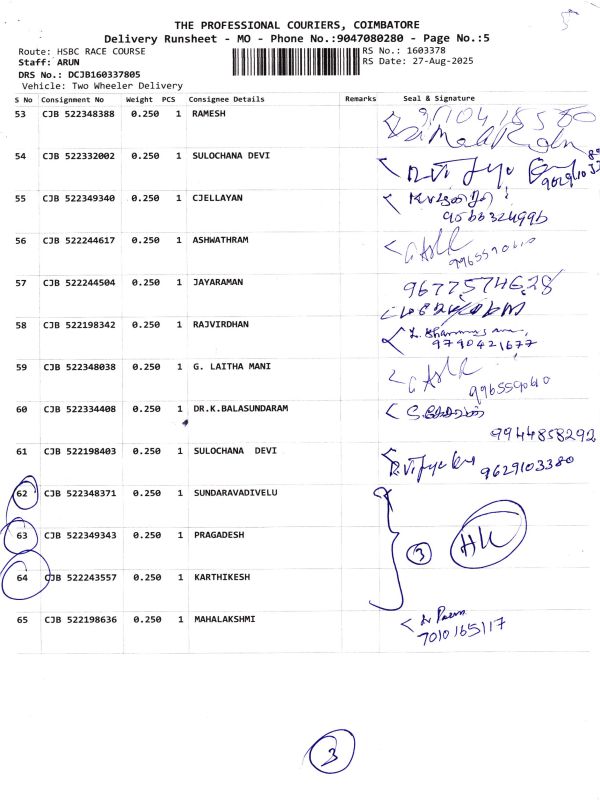 THE PROFESSIONAL COURIERS, COIMBATORE
Delivery Runsheet - MO - Phone No.:9047080280 - Page No.:5
Route: HSBC RACE COURSE
RS No.: 1603378
Staff: ARUN
RS Date: 27-Aug-2025
DRS No.: DCJB160337805
Vehicle: Two Wheeler Delivery
S No Consignment No Weight PCS Consignee Details Remarks Seal & Signature
53 CJB 522348388 0.250 1 RAMESH
54 CJB 522332002 0.250 1 SULOCHANA DEVI
55 CJB 522349340 0.250 1 CJELLAYAN
9566324996
56 CJB 522244617 0.250 1 ASHWATHRAM
57 CJB 522244504 0.250 1 JAYARAMAN 9677574628
58 CJB 522198342 0.250 1 RAJVIRDHAN
9790421677
59 CJB 522348038 0.250 1 G. LAITHA MANI
9965590610
60 CJB 522334408 0.250 1 DR.K.BALASUNDARAM
9944858292
61 CJB 522198403 0.250 1 SULOCHANA DEVI
9629103380
62 CJB 522348371 0.250 1 SUNDARAVADIVELU
63 CJB 522349343 0.250 1 PRAGADESH
3 HK
64 CJB 522243557 0.250 1 KARTHIKESH
65 CJB 522198636 0.250 1 MAHALAKSHMI
7010165117
3